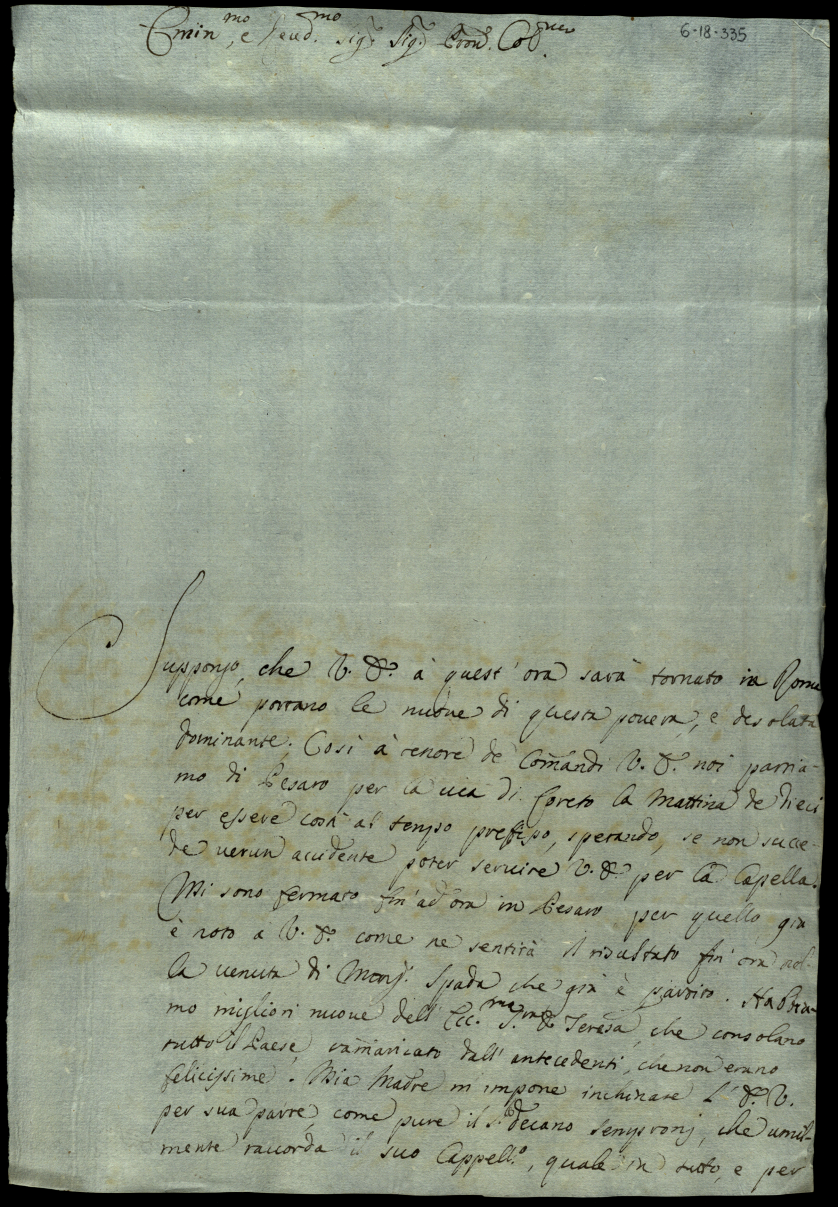 Emin.mo, e Reved.mo Sig.r Sig.r Pron. Col.mo
6-18-335
Suppongo, che V. E. à quest' ora sarà tornato in Roma
come portano le nuove di questa povera, e desolata
dominante. Così à tenore de' Comandi V. E. noi partia-
mo di Pesaro per la via di Loreto la Mattina de dieci
per essere costì al tempo prefisso, sperando, se non succe-
de verun accidente poter servire V. E. per la Capella.
Mi sono fermato fin' ad ora in Pesaro per quello già
è noto a V. E. come ne sentirà il risultato fin' ora nel-
la venuta di Monsig. Spada che già è partito. Habbia-
mo migliori nuove dell' Ecc.ma S.ra D. Teresa, che consolano
tutto il Paese, ramaricato dall' antecedenti, che non erano
felicissime. Mia Madre m' impone inchinare l' E. V.
per sua parte, come pure il S. Decano Sempronj, che umil-
mente raccorda il suo Cappell.o, quale in tutto, e per